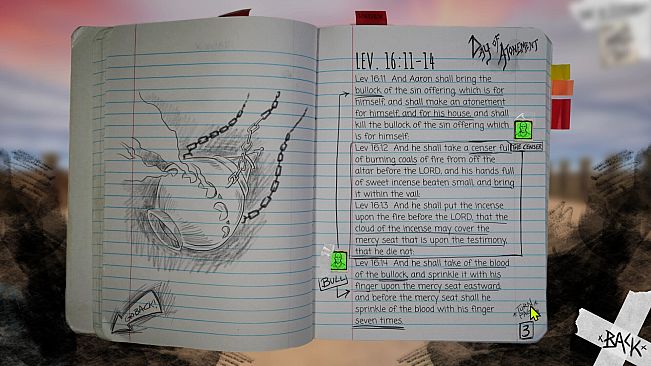 LEV. 16:11-14
DAY OF ATONEMENT
Lev 16:11 And Aaron shall bring the
bullock of the sin offering, which is for
himself, and shall make an atonement
for himself, and for his house, and shall
kill the bullock of the sin offering which
is for himself:
Lev 16:12 And he shall take a censer full
of burning coals of fire from off the
altar before the LORD, and his hands full
of sweet incense beaten small, and bring
it within the vail:
Lev 16:13 And he shall put the incense
upon the fire before the LORD, that the
cloud of the incense may cover the
mercy seat that is upon the testimony,
that he die not:
Lev 16:14 And he shall take of the blood
of the bullock, and sprinkle it with his
finger upon the mercy seat eastward;
and before the mercy seat shall he
sprinkle of the blood with his finger
seven times.
THE CENSER
BULL
GO BACK
TURN
PAGE
3
BACK